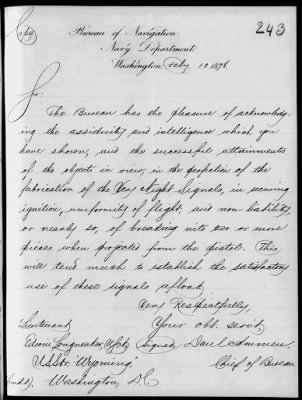 Copy
243
Bureau of Navigation
Navy Department
Washington, Feby 13 1878.
Sir
The Bureau has the pleasure of acknowledg-
ing the assiduity and intelligence which you
have shown, and the successful attainments
of the objects in view, in the
fabrication of the Very Night Signals, in securing
ignition, uniformity of flight, and non liability,
or nearly so, of breaking into two or more
pieces when projected from the pistol. This
will tend much to establish the satisfactory
use of these signals afloat.
Very Respectfully,
Lieutenant Your obt. servt,
Edwin Longnecker, Signed, Daniel Ammen
USStr. "Wyoming" Chief of Bureau
Washington, DC